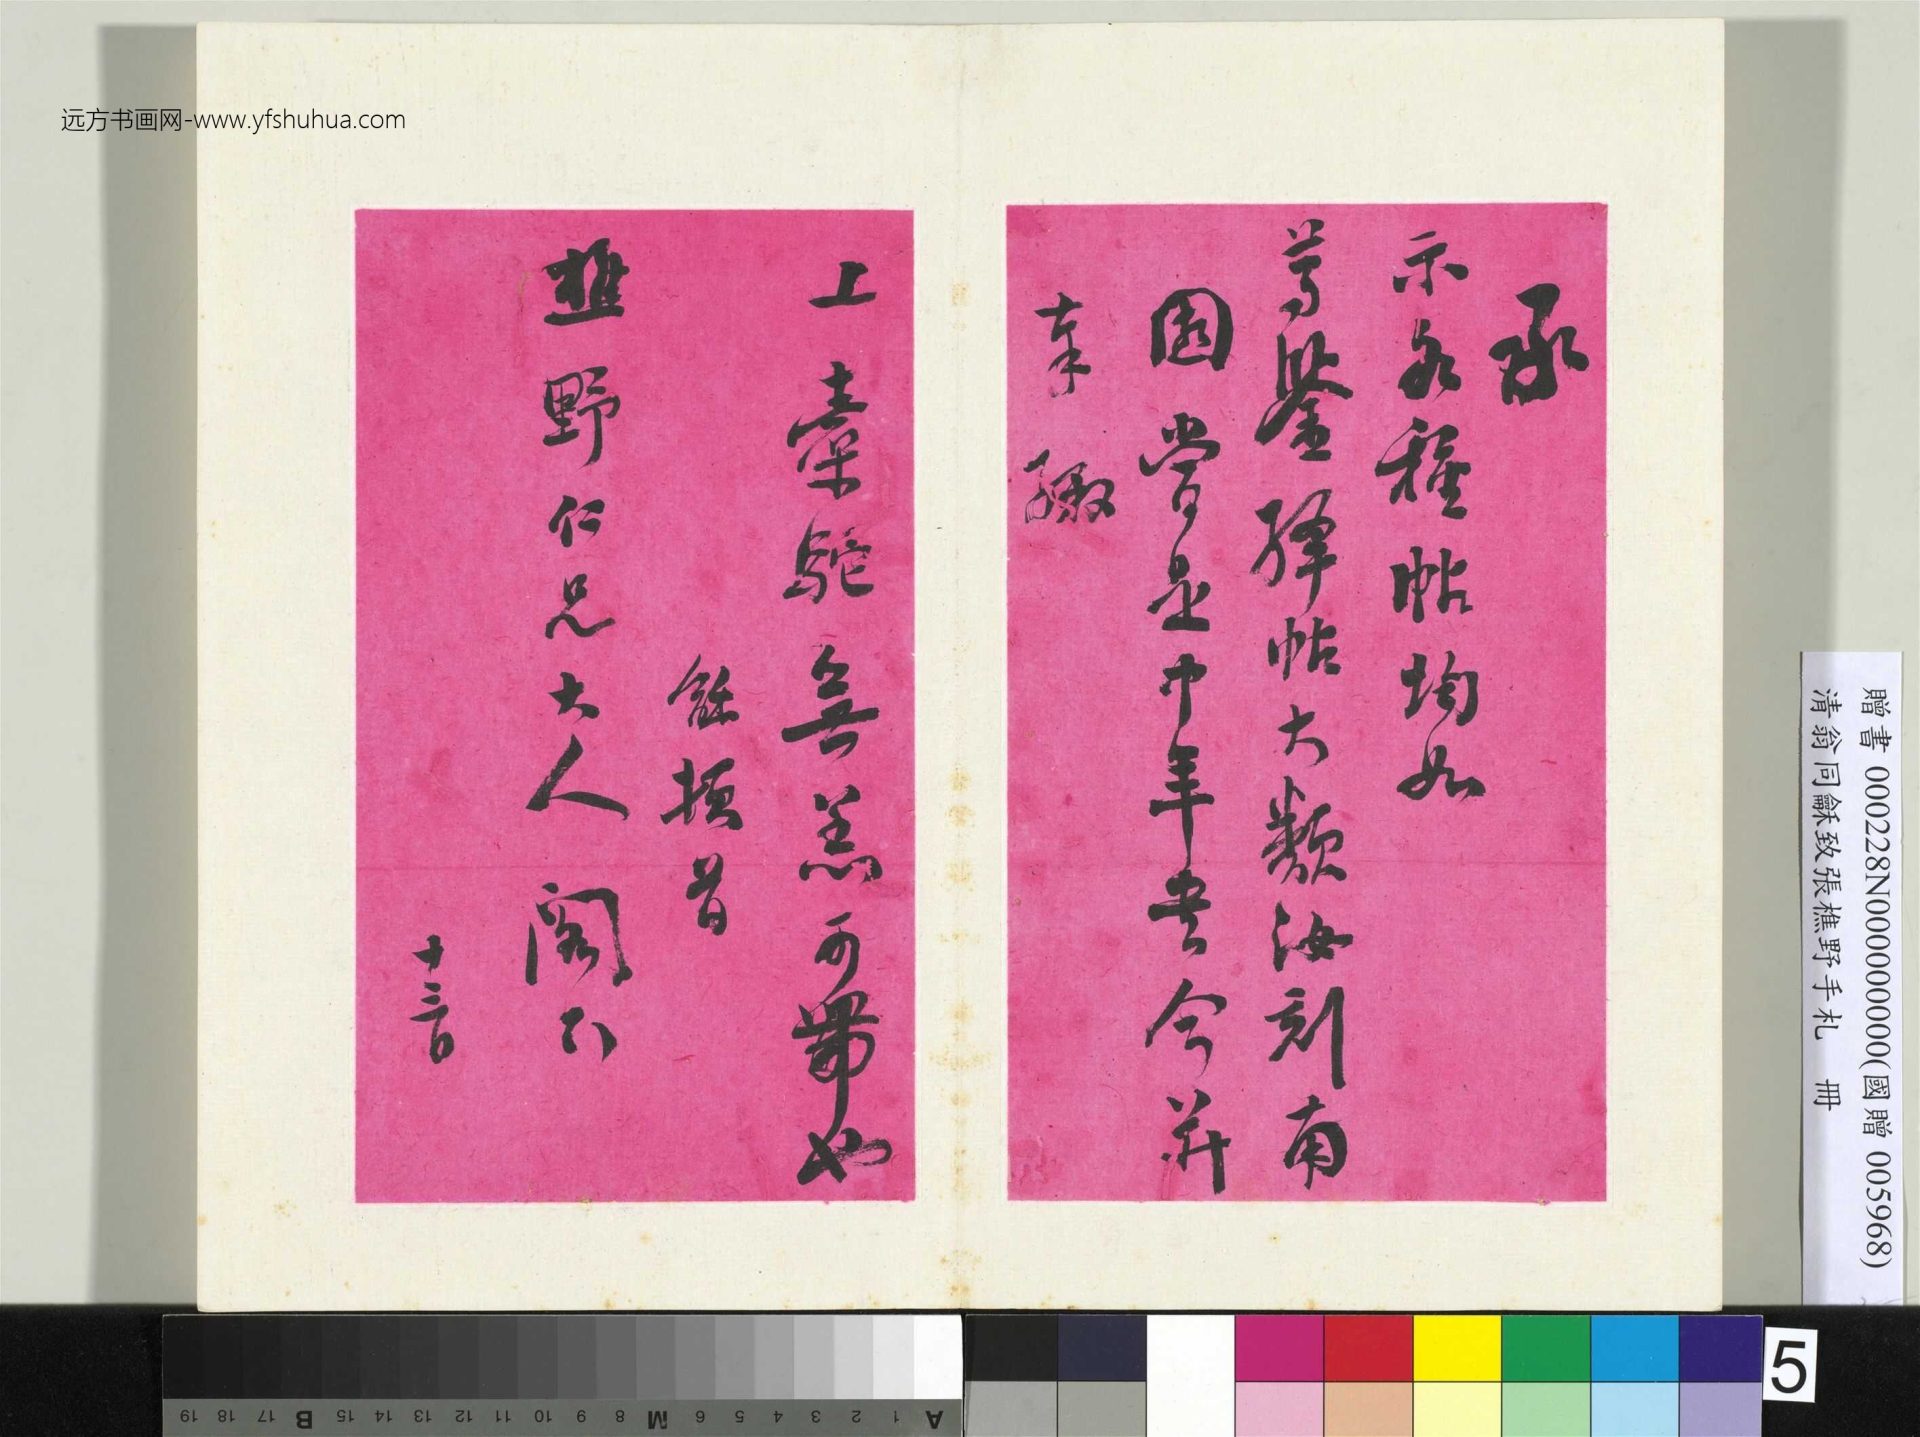 远方书画网-www.yfshuhua.com
承
示各種帖均如
尊鑒絳帖大類汝刻南
園嘗是中年書今并
奉繳
上橐駝無恙可帶也
龢頓首
樵野仁兄大人閣下
十三日
贈書 000228N000000000(國贈 005968)
清翁同龢致張樵野手札 冊
A 1 2 3 4 5 6 M 8 9 10 11 12 13 14 15 B 17 18 19
5